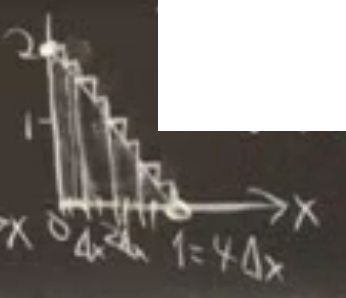 2
1
X
X 0 Δx 2Δx 1=4Δx